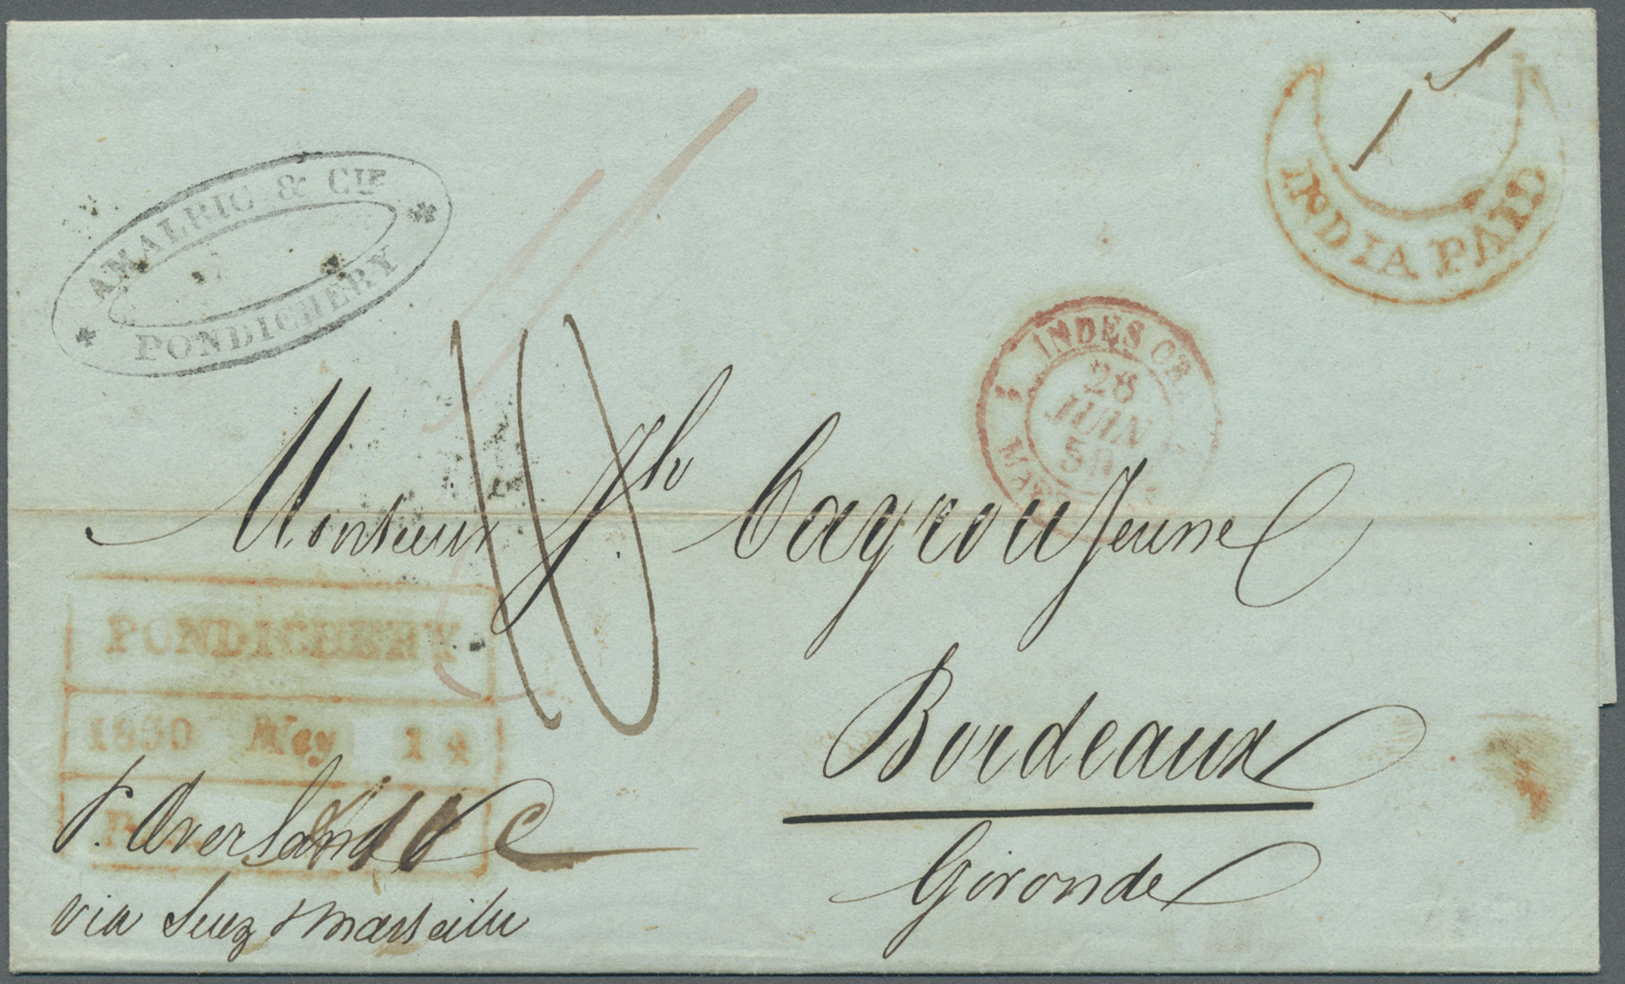 AMALRIC & CIE
PONDICHERY
INDIA PAID
INDES OR.
28
JUIN
50
10
Monsieur Jh. Cayrou Jeune
Bordeaux
Gironde
PONDICHERRY
1850 May 14
P. Overland
via Suez & Marseille